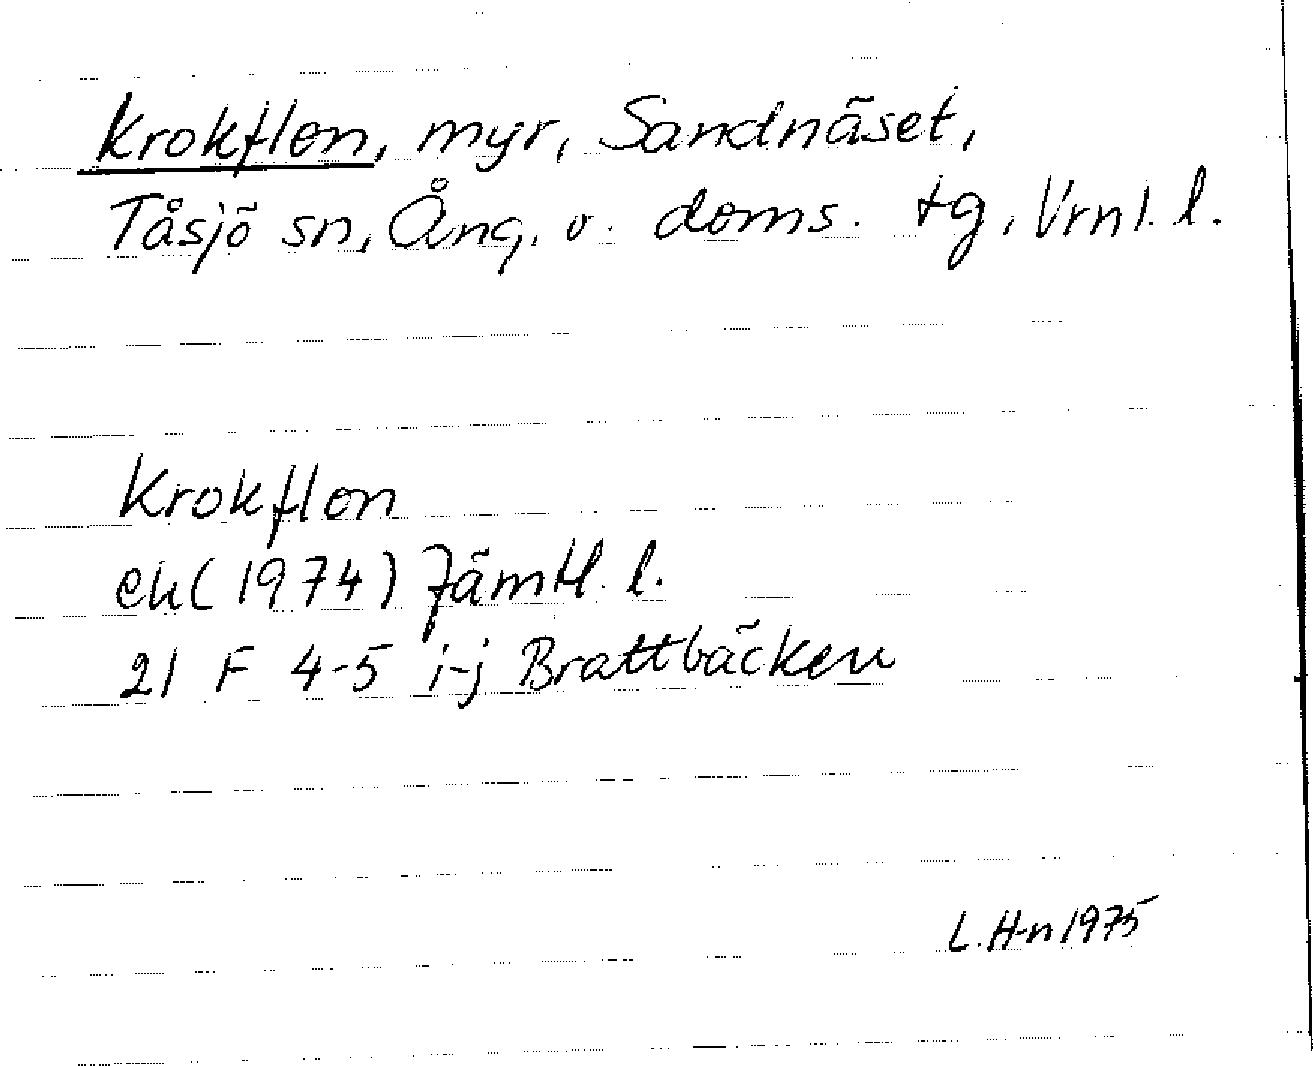 Krokflon, myr, Sandnäset,
Tåsjö sn, Ång. v. doms. tg, Vrnl. l.
Krokflon
ek (1974) Jämtl. l.
21 F 4-5 i-j Brattbäcken
L. H-n 1975